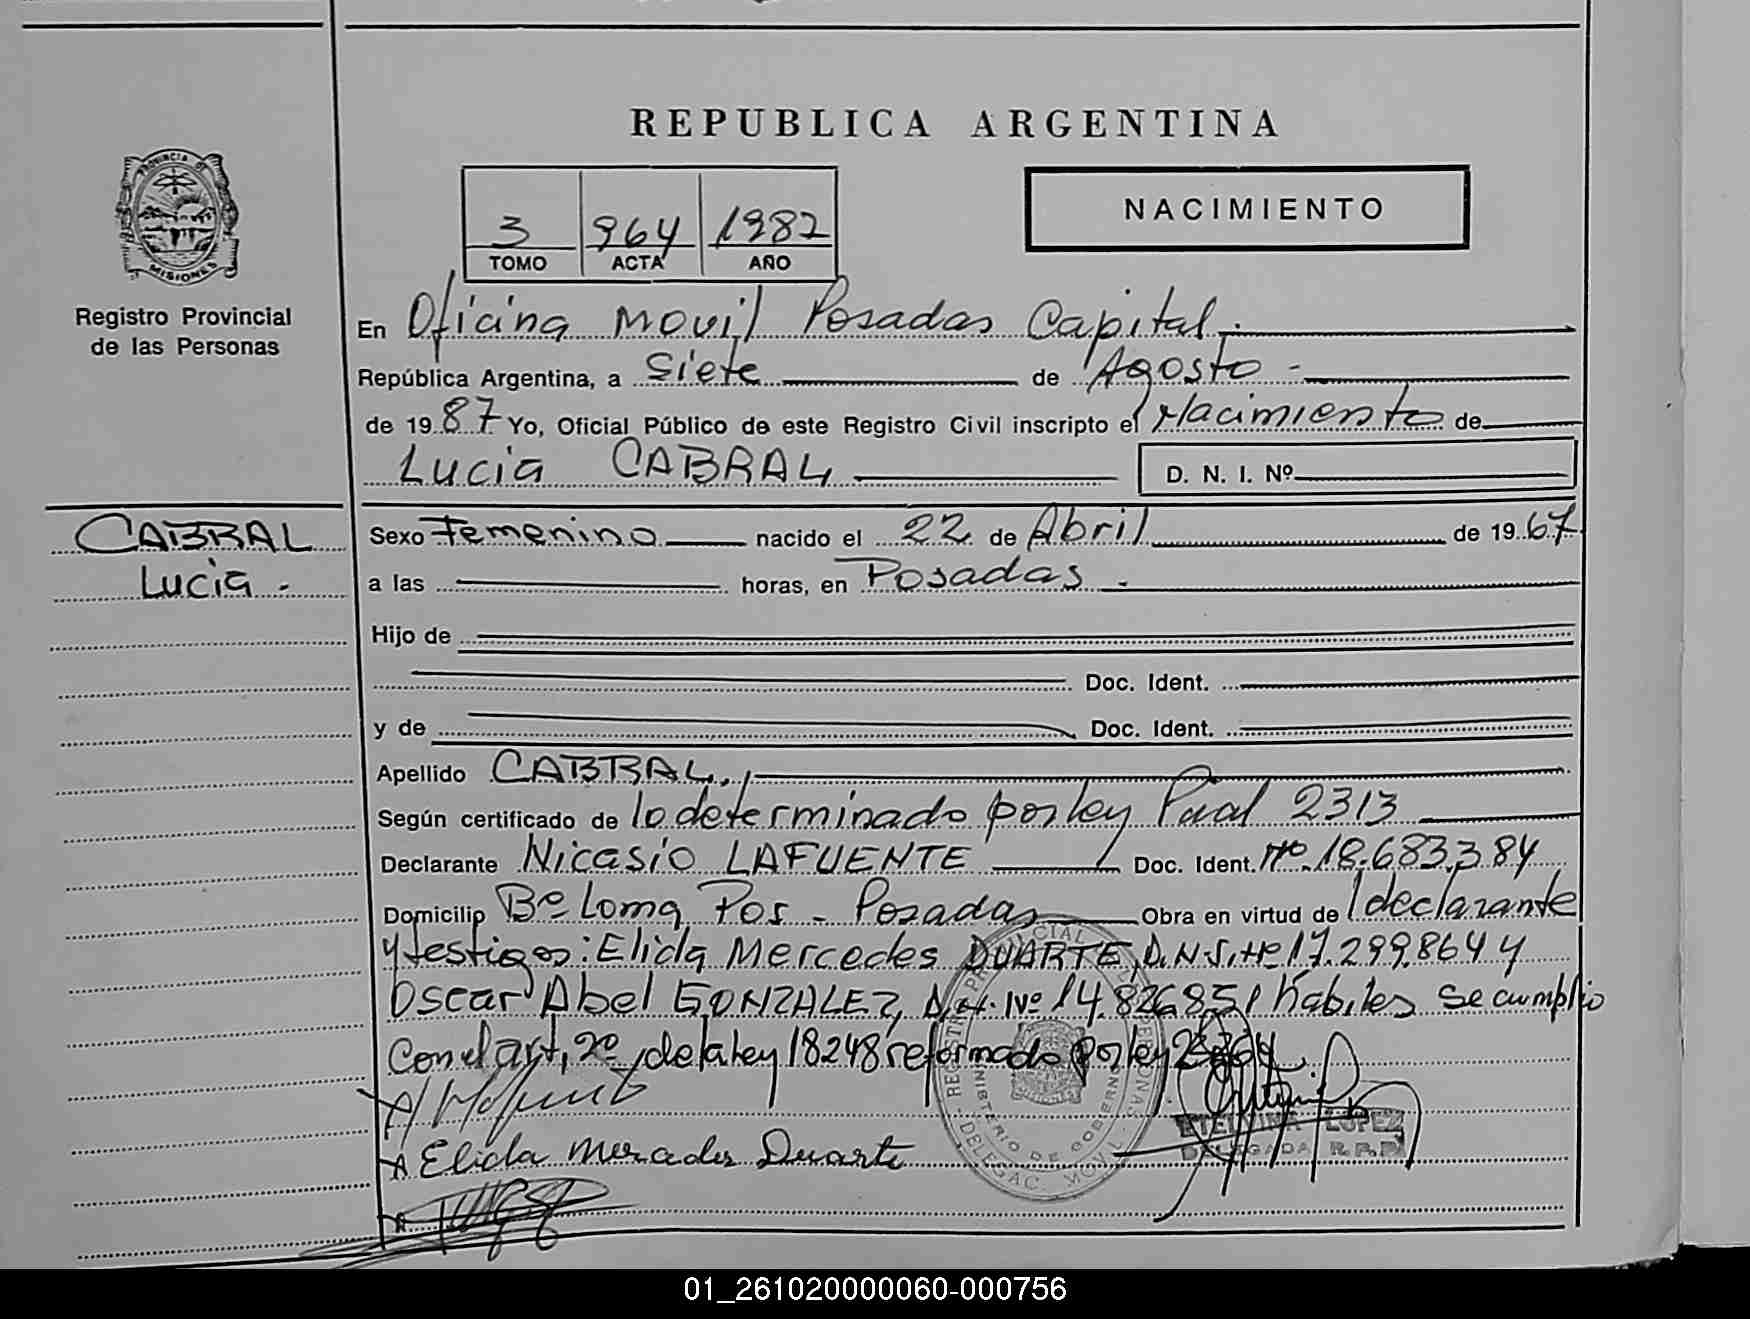 REPUBLICA ARGENTINA
PROVINCIA DE
MISIONES
Registro Provincial
de las Personas
3 964 1987
TOMO ACTA AÑO
NACIMIENTO
En Oficina Movil Posadas Capital.
República Argentina, a Siete de Agosto -
de 1987 Yo, Oficial Público de este Registro Civil inscripto el Nacimiento de
Lucia CABRAL D. N. I. Nº
CABRAL
Lucia -
Sexo Femenino nacido el 22 de Abril de 1967
a las horas, en Posadas -
Hijo de
Doc. Ident.
y de Doc. Ident.
Apellido CABRAL,
Según certificado de lo determinado por ley Pcial 2313
Declarante Nicasio LAFUENTE Doc. Ident. Nº 18.683.384
Domicilio Bº Loma Pos - Posadas Obra en virtud de l declarante
y testigos: Elida Mercedes DUARTE, D.N.I. Nº 17.299.864 y
Oscar Abel GONZALEZ, D.N.I. Nº 14.826.851 hábiles se cumplio
con el art, 2º de la ley 18248 reformado por ley
Elida Mercedes Duarte
LOPEZ
DELEGADA R.P.P.
01_261020000060-000756